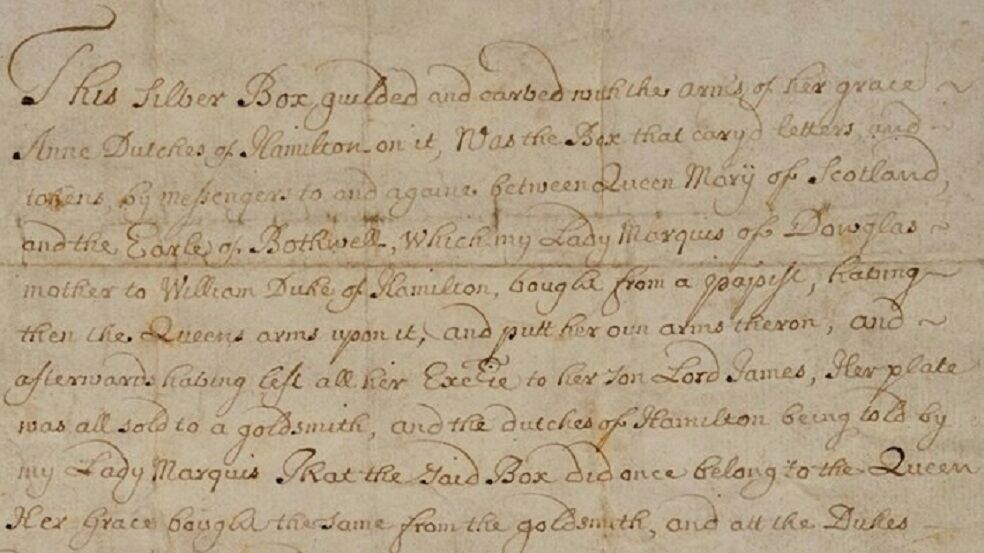 This Silver Box, guilded and carved with the arms of her grace ~
Anne Dutches of Hamilton on it, Was the Box that cary'd letters, and ~
tokens, by messengers to and againe between Queen Mary of Scotland,
and the Earle of Bothwell, Which my Lady Marquis of Dowglas ~
mother to William Duke of Hamilton, bought from a papist, having ~
then the Queens arms upon it, and putt her oun arms theron, and ~
afterwards having left all her Exe:rie to her son Lord James, Her plate
was all sold to a goldsmith, and the dutches of Hamilton being told by
my Lady Marquis That the said Box did once belong to the Queen
Her Grace bought the same from the goldsmith, and att the Dukes —